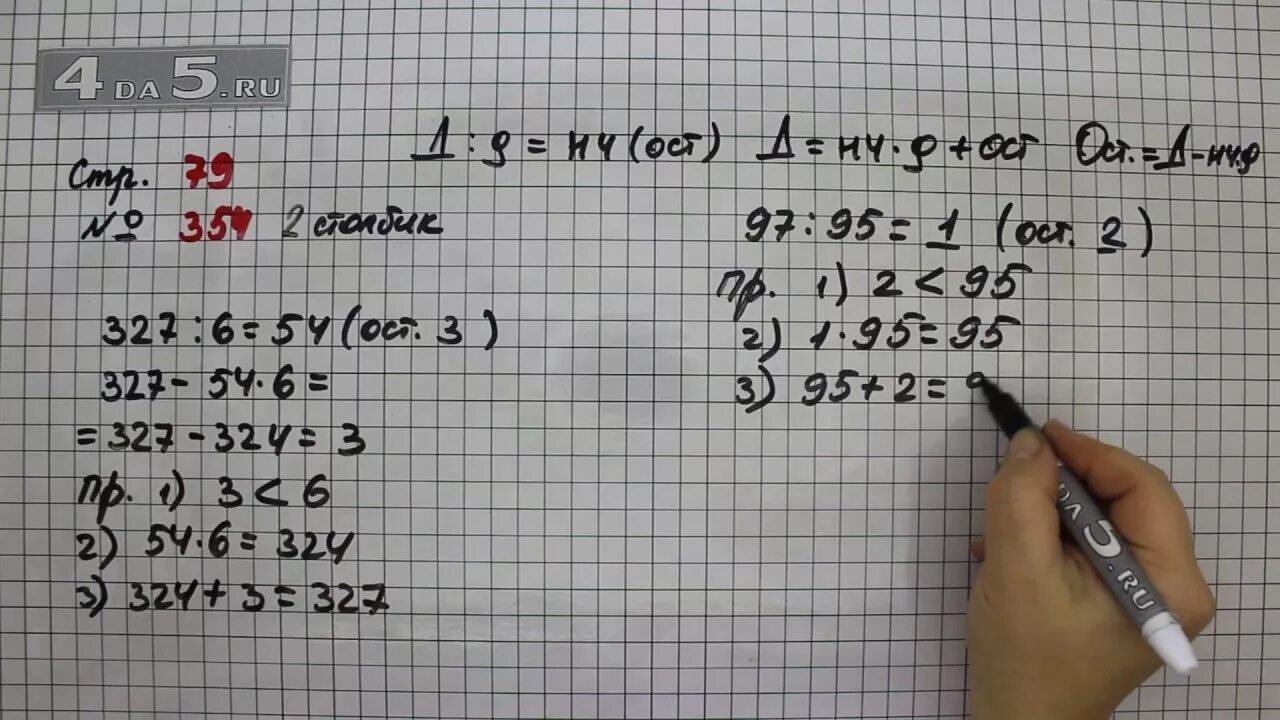 4 DA 5.RU
Д : д = нч (ост) Д = нч · д + ост Ост. = Д - нч·д
Стр. 79
№ 354 2 столбик
327 : 6 = 54 (ост. 3 )
327 - 54 · 6 =
= 327 - 324 = 3
пр. 1) 3 < 6
2) 54 · 6 = 324
3) 324 + 3 = 327
97 : 95 = 1 (ост. 2 )
пр. 1) 2 < 95
2) 1 · 95 = 95
3) 95 + 2 = 9
DA 5.RU